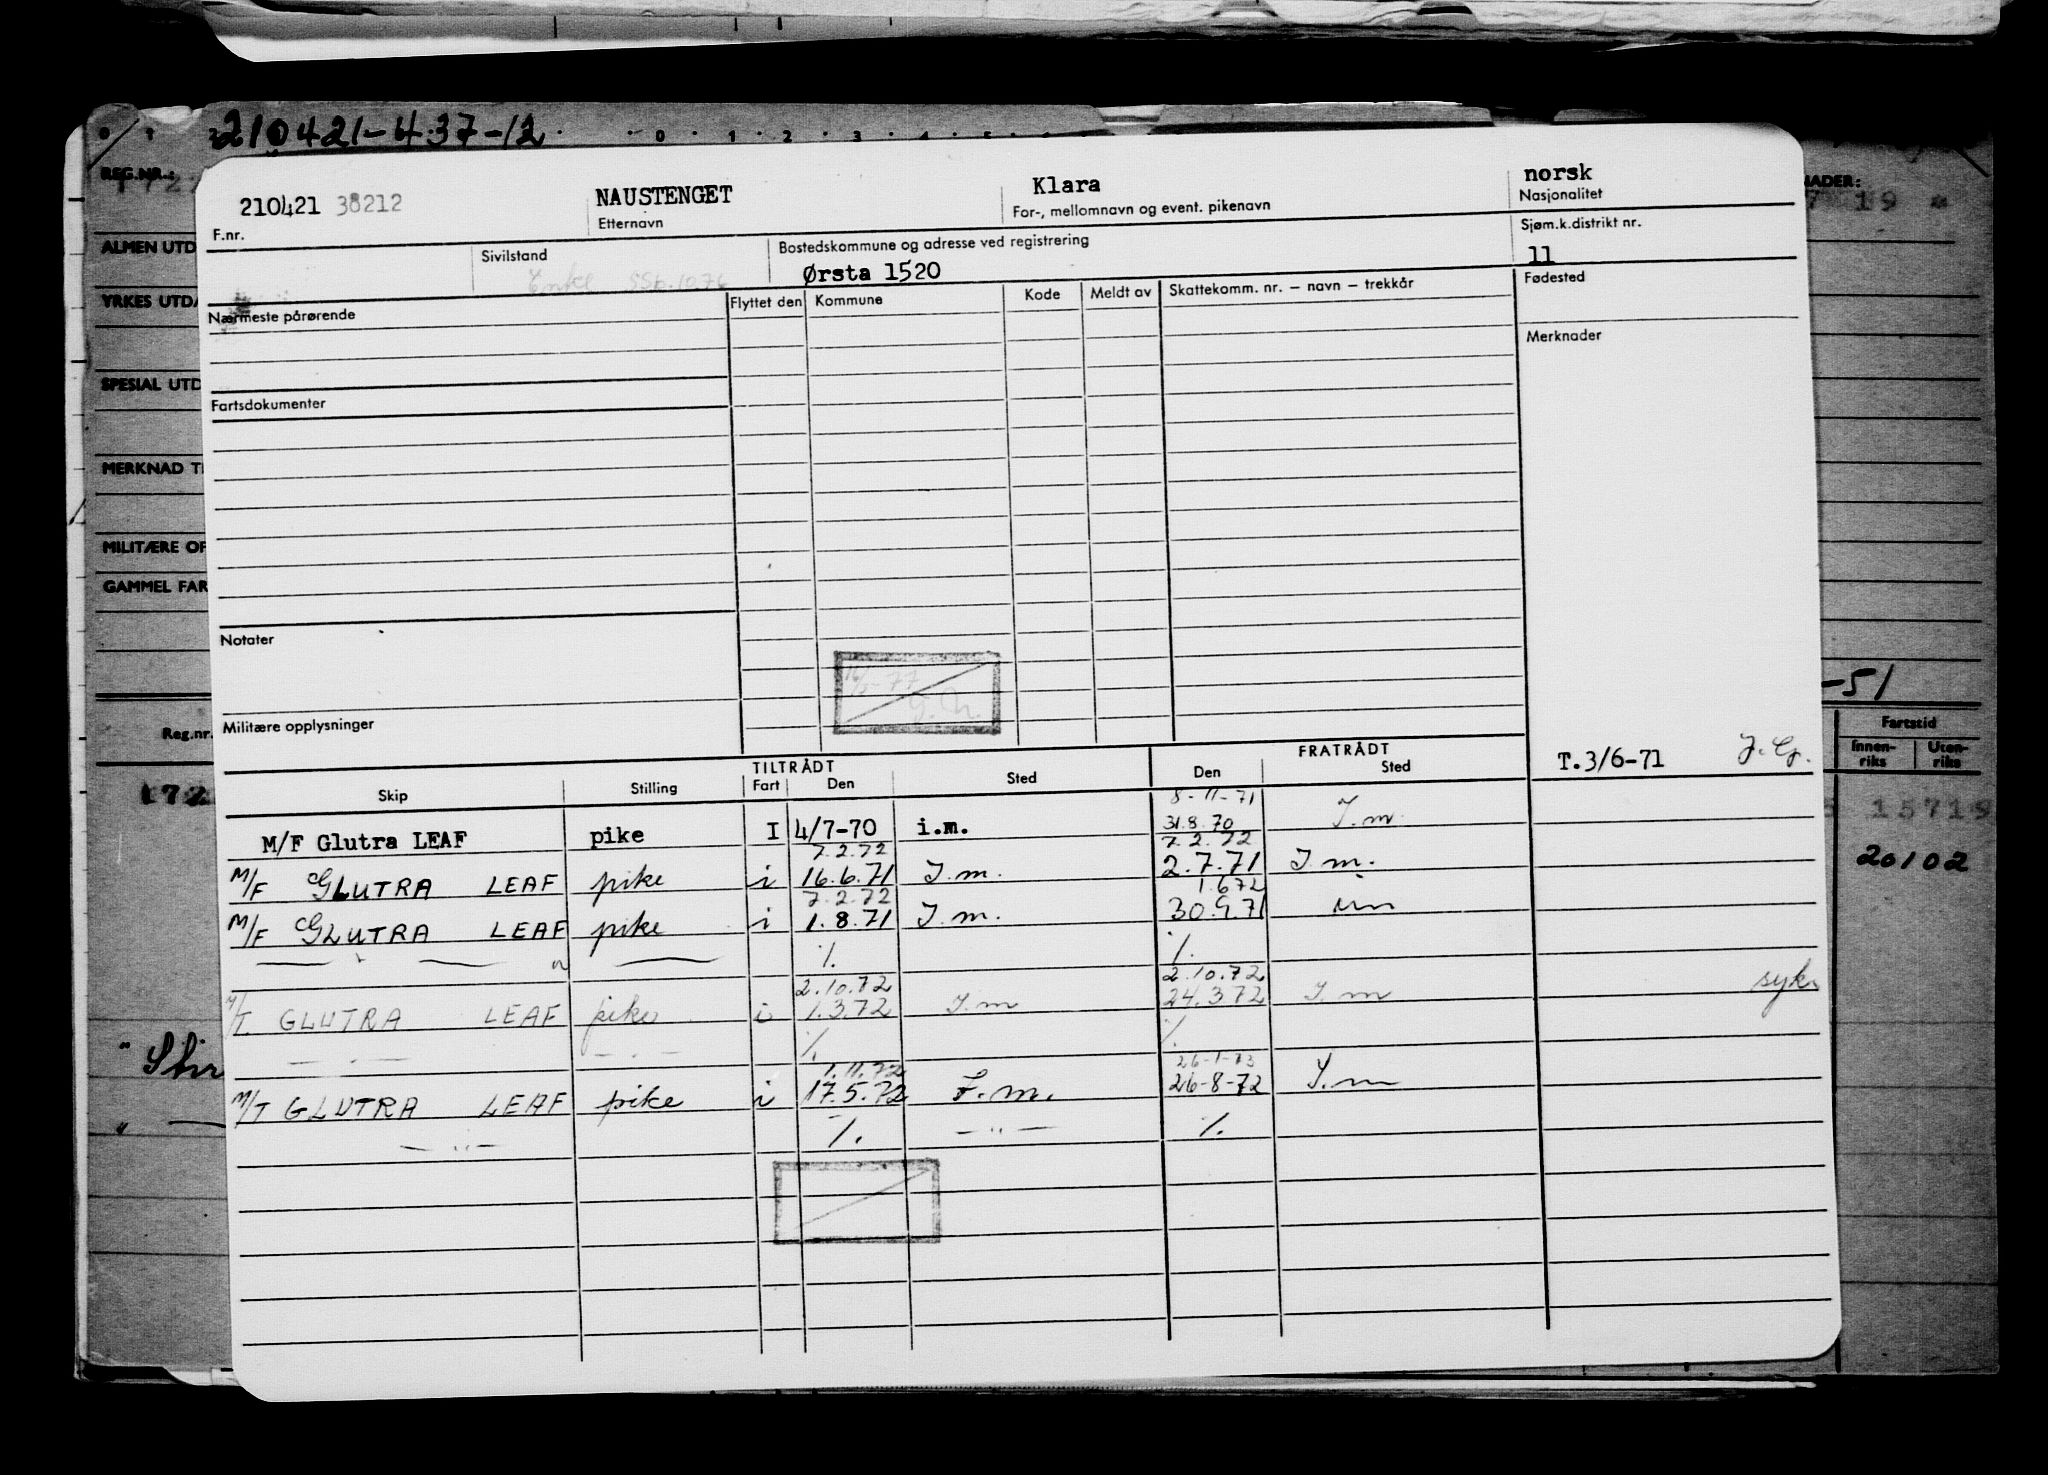 210421-4.37-12
REG.NR.:
210421 38212
NAUSTENGET
Klara
norsk
F.nr.
Etternavn
For-, mellomnavn og event. pikenavn
Nasjonalitet
ALMEN UTD
Sivilstand
Bostedskommune og adresse ved registrering
Sjøm.k.distrikt nr.
Enke
Ørsta 1520
11
YRKES UTD
Nærmeste pårørende
Flyttet den
Kommune
Kode
Meldt av
Skattekomm. nr. — navn — trekkår
Fødested
Merknader
SPESIAL UTD
Fartsdokumenter
MERKNAD T
MILITÆRE OP
GAMMEL FAR
Notater
-77
-51
Militære opplysninger
Reg.nr.
Fartstid
Innen-riks
Uten-riks
TILTRÅDT
FRATRÅDT
T.3/6-71
Skip
Stilling
Fart
Den
Sted
Den
Sted
15719
8-11-71
M/F Glutra LEAF pike I 4/7-70 i.m. 31.8.70 I.m.
7.2.72 7.2.72
M/F GLUTRA LEAF pike i 16.6.71 I.m. 2.7.71 I.m.
20102
7.2.72 1.6.72
M/F GLUTRA LEAF pike i 1.8.71 I.m. 30.9.71 im
%. %.
2.10.72 2.10.72
M/T. GLUTRA LEAF pike i 1.3.72 I.m 24.3.72 I.m syk.
— . — — . — %. %.
1.11.72 26-1-73
M/T GLUTRA LEAF pike i 17.5.72 I.m. 26-8-72 I.m
— " — %. — " — %.